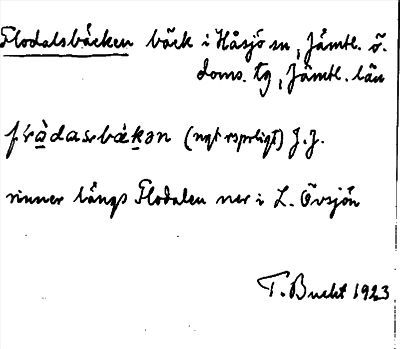 Flodalsbäcken bäck i Håsjö sn, Jämtl. ö.
doms. tg, Jämtl. län
(ngt osprligt) J. J.
rinner längs Flodalen ner i L. Övsjön
T. Bucht 1923